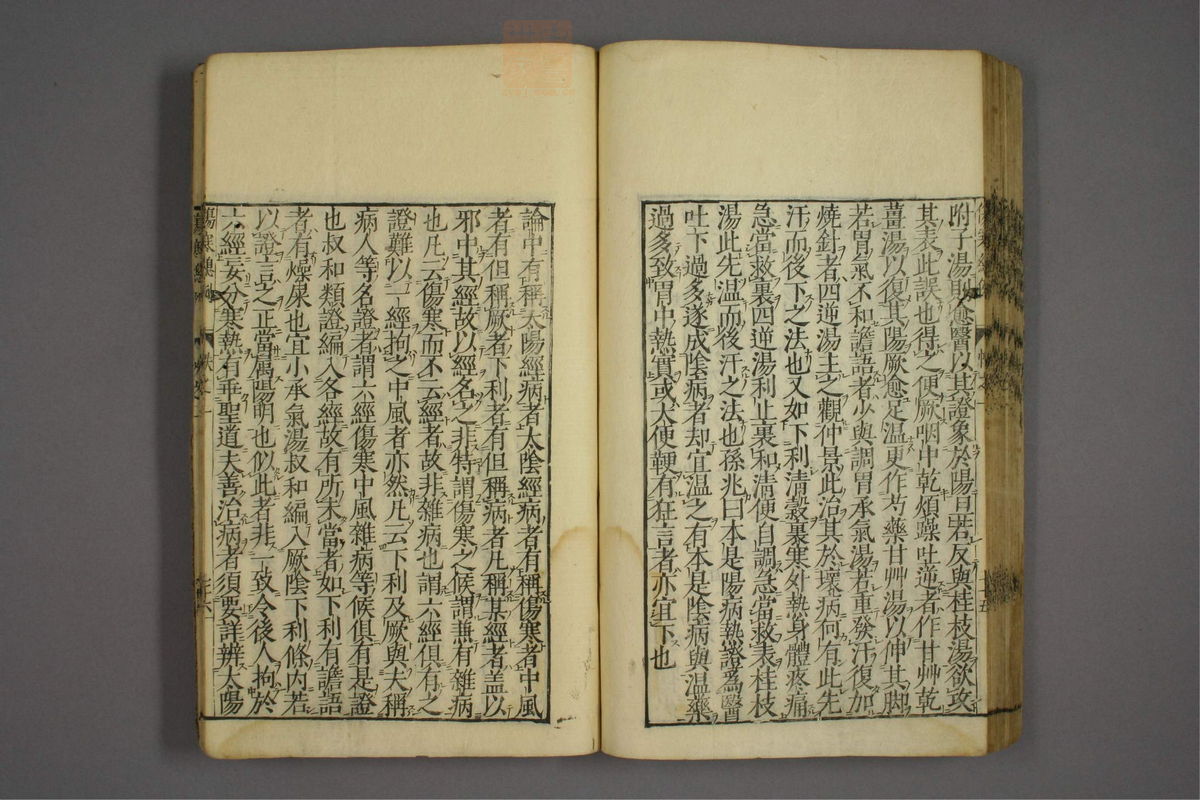 附子湯則愈醫以其證象於陽旦若反與桂枝湯欲攻
其表此誤也得之便厥咽中乾煩躁吐逆者作甘艸乾
薑湯以復其陽厥愈足溫更作芍藥甘艸湯以伸其脚
若胃氣不和譫語者少與調胃承氣湯若重發汗復加
燒針者四逆湯主之觀仲景此治其於壞病何有此先
汗而後下之法也又如下利清穀裏寒外熱身體疼痛
急當救裏四逆湯利止裏和清便自調急當救表桂枝
湯此先溫而後汗之法也孫兆曰本是陽病熱證爲醫
吐下過多遂成陰病者却宜溫之有本是陰病與溫藥
過多致胃中熱實或大便鞕有狂言者亦宜下也
論中有稱太陽經病者太陰經病者有稱傷寒者中風
者有但稱厥者下利者有但稱病者凡稱某經者盖以
邪中其經故以經名之非特謂傷寒之候謂兼有雜病
也凡云傷寒而不云經者故非雜病也謂六經俱有之
證難以一經拘之中風者亦然凡云下利及厥與夫稱
病人等名證者謂六經傷寒中風雜病等候俱有是證
也叔和類證編入各經故有所未當者如下利有譫語
者有燥屎也宜小承氣湯叔和編入厥陰下利條內若
以證言之正當屬陽明也似此者非一致令後人拘於
六經妄分寒熱有乖聖道夫善治病者須要詳辨太陽